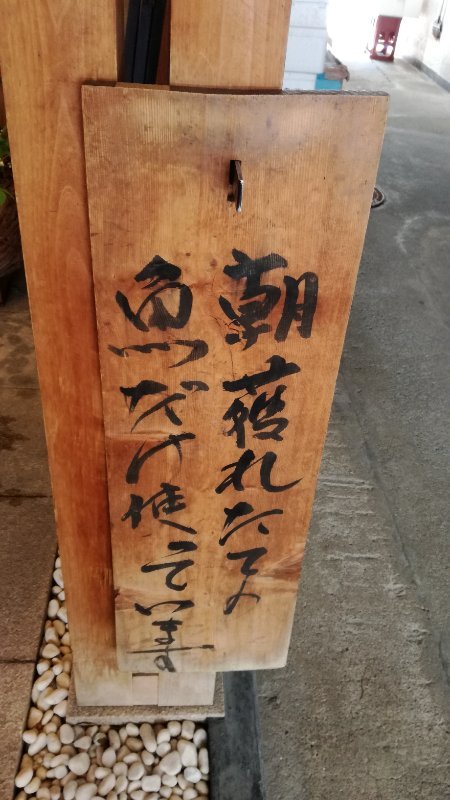 朝獲れたての
魚だけ使っています